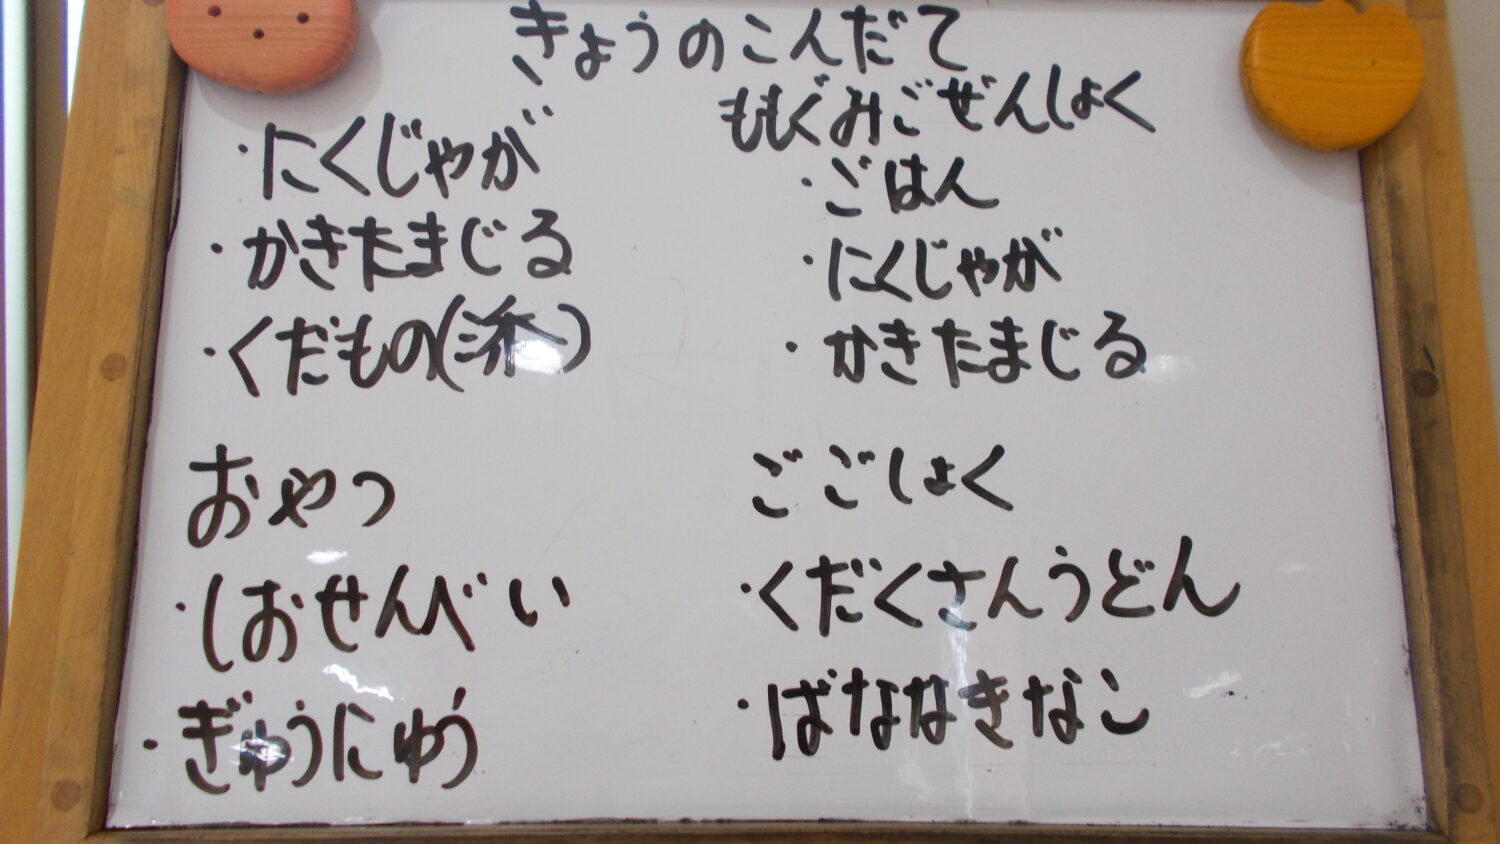 きょうのこんだて
・にくじゃが
・かきたまじる
・くだもの(
おやつ
・しおせんべい
・ぎゅうにゅう
ももぐみごぜんしょく
・ごはん
・にくじゃが
・かきたまじる
ごごしょく
・くだくさんうどん
・ばななきなこ